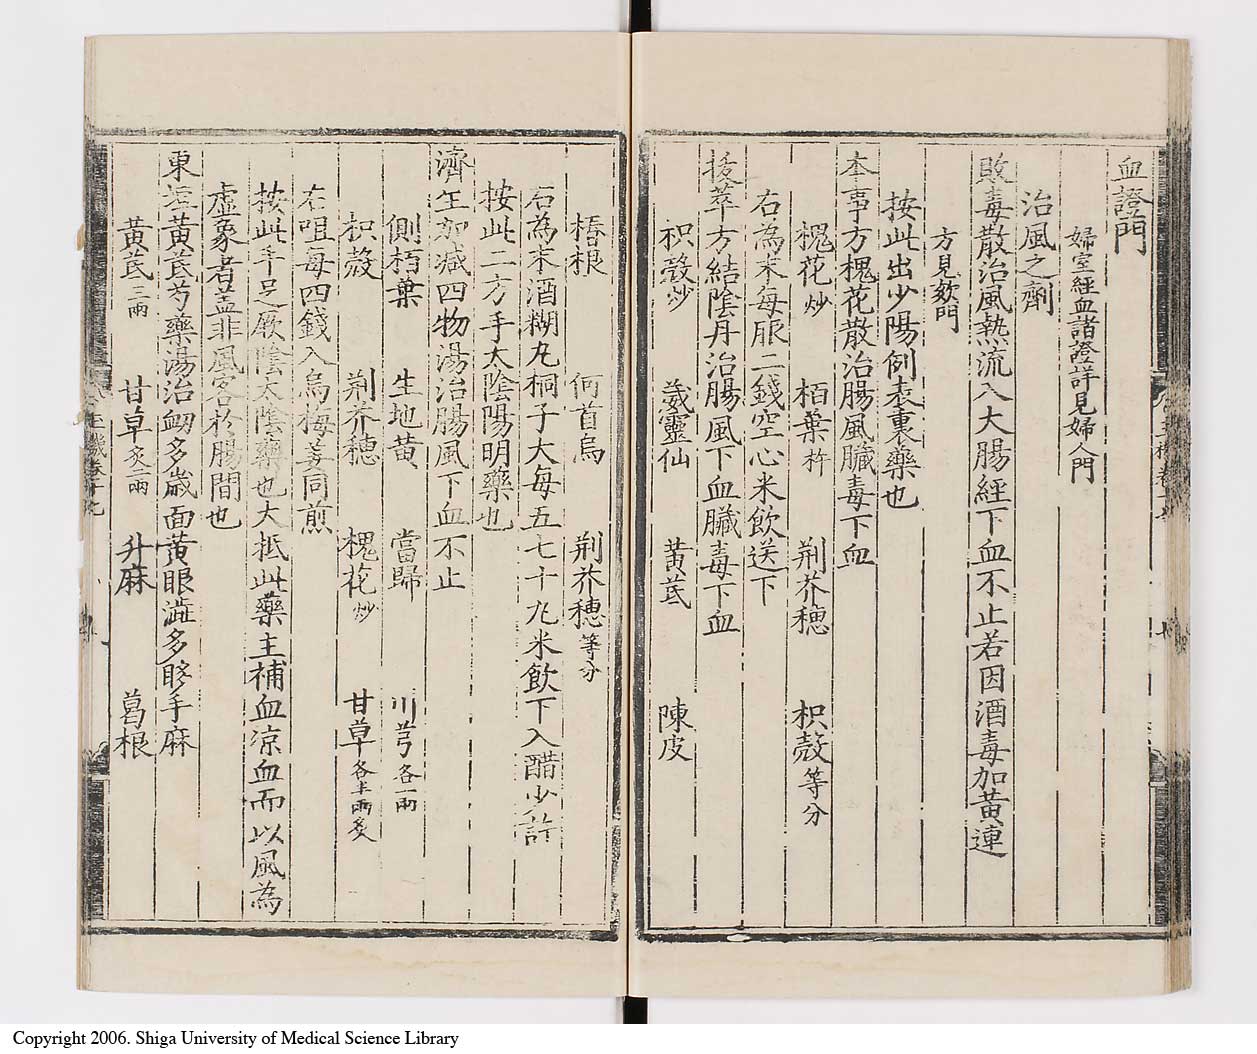 血證門
婦室經血諸證詳見婦人門
治風之劑
敗毒散治風熱流入大腸經下血不止若因酒毒加黃連
方見欬門
按此出少陽例表裏藥也
本事方槐花散治腸風臟毒下血
槐花炒 栢葉杵 荆芥穗 枳殼等分
右為末每服二錢空心米飲送下
拔萃方結陰丹治腸風下血臟毒下血
枳殼炒 葳靈仙 黃芪 陳皮
椿根 何首烏 荆芥穗等分
右為末酒糊丸桐子大每五七十丸米飲下入醋少許
按此二方手太陰陽明藥也
濟生加减四物湯治腸風下血不止
側栢葉 生地黃 當歸 川芎各一兩
枳殼 荆芥穗 槐花炒 甘草各半兩炙
右咀每四錢入烏梅姜同煎
按此手足厥陰太陰藥也大抵此藥主補血凉血而以風為
虛象者盖非風客於腸間也
東垣黃芪芍藥湯治衂多歲面黃眼澁多眵手麻
黃芪三兩 甘草炙二兩 升麻 葛根
Copyright 2006. Shiga University of Medical Science Library